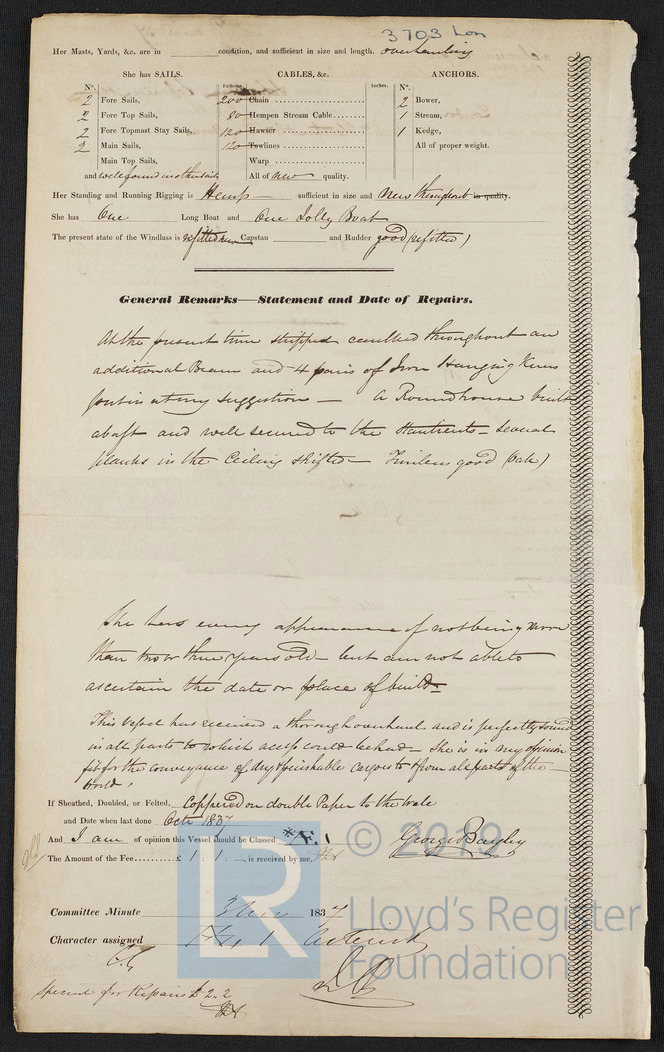 3703 Lon
Her Masts, Yards, &c. are in condition, and sufficient in size and length. overhauling
She has SAILS.
CABLES, &c.
ANCHORS.
N°. Fathoms. Inches. N°.
2 Fore Sails, 200 Chain 2 Bower,
2 Fore Top Sails, 80 Hempen Stream Cable 1 Stream,
2 Fore Topmast Stay Sails, 120 Hawser 1 Kedge,
2 Main Sails, 120 Towlines All of proper weight.
Main Top Sails, Warp
and well found in other sails All of new quality.
Her Standing and Running Rigging is Hemp sufficient in size and new throughout in quality.
She has One Long Boat and One Jolly Boat
The present state of the Windlass is refitted new Capstan and Rudder good (refitted)
General Remarks—Statement and Date of Repairs.
At the present time stripped caulked throughout an
additional Beam and 4 pairs of Iron Hanging Knees
put in at my suggestion — A Roundhouse built
abaft and well secured to the — several
planks in the Ceiling shifted — Timbers good (oak)
She has every appearance of not being more
than two or three years old — but am not able to
ascertain the date or place of build —
This vessel has received a thorough overhaul and is perfectly sound
in all parts to which access could be had — She is in my opinion
fit for the conveyance of dry & perishable cargoes to & from all parts of the
World.
If Sheathed, Doubled, or Felted, Coppered on double Paper to the wale
and Date when last done Octr 1837
And I am of opinion this Vessel should be Classed * Æ 1
George Bayley
The Amount of the Fee £ 1 : 1 : is received by me,
Committee Minute 1837
Character assigned Æ 1 Asterisk
Special for Repairs £ 2.2
© 2019
LR
Lloyd's Register
Foundation